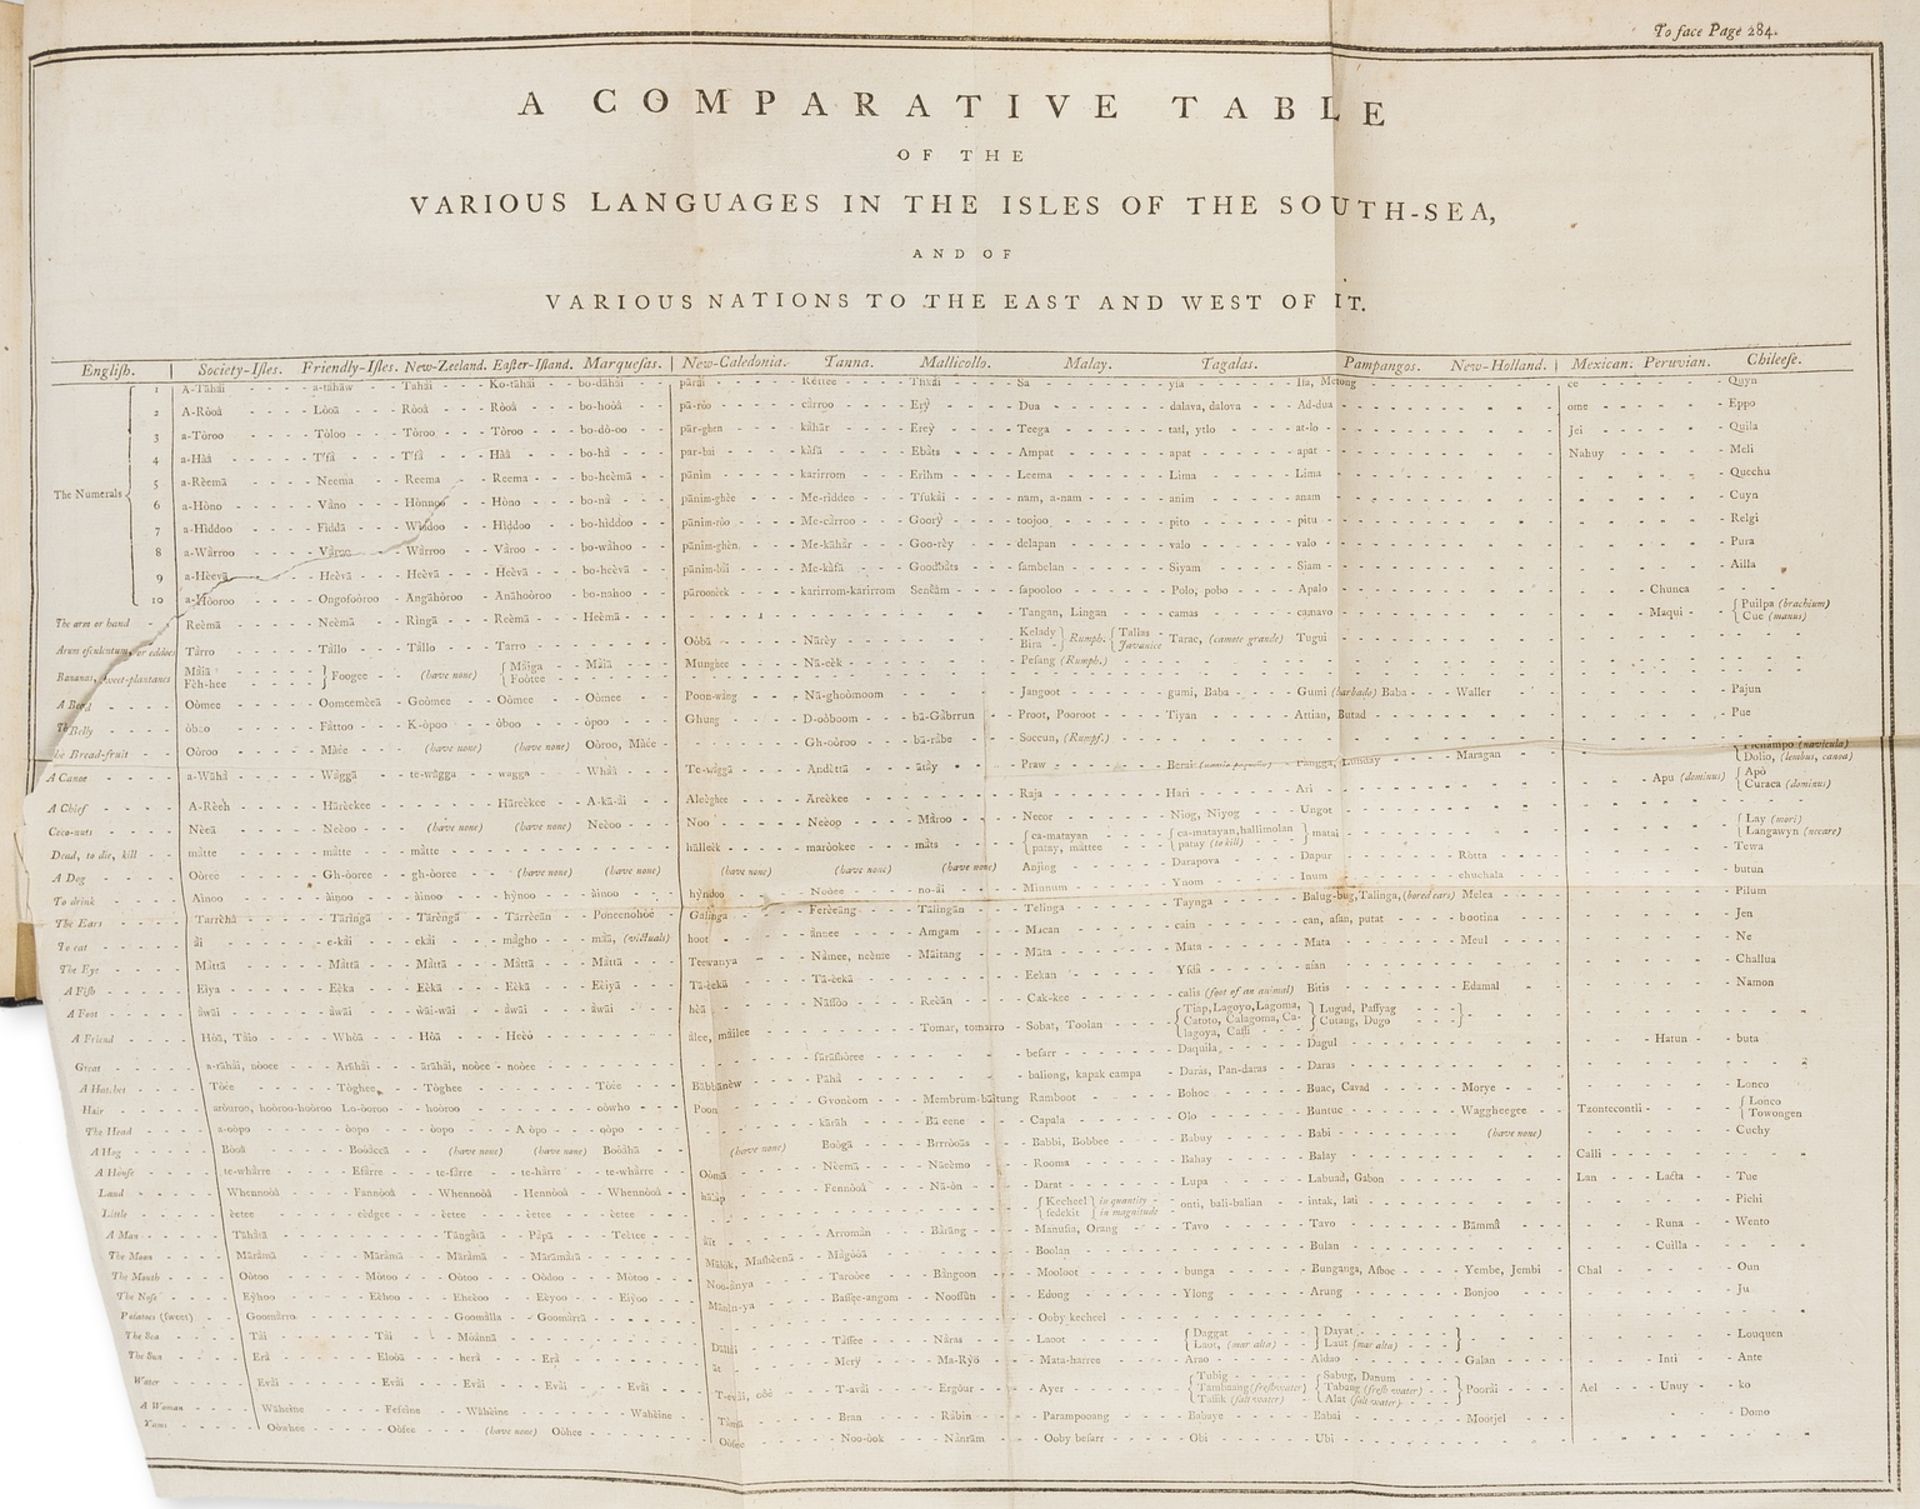 To face Page 284.
A COMPARATIVE TABLE
OF THE
VARIOUS LANGUAGES IN THE ISLES OF THE SOUTH-SEA,
AND OF
VARIOUS NATIONS TO THE EAST AND WEST OF IT.
English. Society-Isles. Friendly-Isles. New-Zeeland. Easter-Island. Marquesas. New-Caledonia. Tanna. Mallicollo. Malay. Tagalas. Pampangos. New-Holland. Mexican. Peruvian. Chileese.
The Numerals
1 A-Tăhăi a-tăhăw Tahăi Ko-tăhăi bo-dăhăi părăi Rettee Sa ysa Isa, Metong ce Quyn
2 A-Ròoă Lòoă Ròoă Ròoă bo-hoòă pā-ròo càrroo Erỳ Dua dalava, dalova Ad-dua ome Eppo
3 a-Tòroo Tòloo Tòroo Tòroo bo-dò-oo pār-ghen kăhār Ereỳ Teega tatl, ytlo at-lo Jei Quila
4 a-Hăă T'fă T'fă Hăă bo-hă par-bai kăfă Ebăts Ampat apat apat Nahuy Meli
5 a-Rèemā Neema Reema Reema bo-heèmā pănim karirrom Erihm Leema Lima Lima Quechu
6 a-Hòno Văno Hònnoo Hòno bo-nă pănim-ghèe Me-riddee Tsukăi nam, a-nam anim anam Cuyn
7 a-Hìddoo Fìddā Whìddoo Hìddoo bo-hìddoo pănim-ròo Me-càrroo Goorỳ toojoo pito pitu Relgi
8 a-Wărroo Văroo Wărroo Văroo bo-wăhoo pănim-ghèn Me-kăhăr Goo-rèy delapan valo valo Pura
9 a-Hèevă Heèvă Heèvă Heèvă bo-heèvă pănim-băi Me-kăfă Goodbăts sambelan Siyam Siam Ailla
10 a-Hòoroo Ongofoòroo Angăhòroo Anăhoòroo bo-nahoo pāroonèek karirrom-karirrom Senēăm sapooloo Polo, pobo Apalo Chunca
The arm or hand Reèmā Neèmā Rìngă Reèmă Heèmă Tangan, Lingan camas camavo Maqui Puilpa (brachium) Cue (manus)
Arum esculentum, or eddoes Tărro Tăllo Tăllo Tarro Oòbă Nărèy Kelady Bira Rumph. Tallas Javanice Tarac, (camote grande) Tugui
Bananas, sweet-plantanes Măiă Fèh-hee Foogee (have none) Măiga Foòtee Măiă Munghee Nă-eèk Pesang (Rumph.)
A Beard Oòmee Oomeemèeă Goòmee Oòmee Oòmee Poon-wăng Nă-ghoòmoom Jangoot gumi, Baba Gumi (barbado) Baba Waller Pajun
The Belly òboo Făttoo K-òpoo òboo òpoo Ghung D-oòboom bă-Găbrrun Proot, Pooroot Tiyan Attian, Butad Pue
The Bread-fruit Oòroo Măèe (have none) (have none) Oòroo, Măèe Gh-oòroo bă-răbe Soccun, (Rumpf.)
A Canoe a-Wăhă Wăggă te-wăgga wagga Whăă Te-wăggă Andèttă ătăy Praw Berai Pangga, Lunday Maragan Pichampo (navicula) Dolio, (lembus, canoa)
A Chief A-Rèeh Hărèekee Hăreèkee A-kă-ăi Aleèghee Ăreèkee Raja Hari Ari Apu (dominus) Apò Curaca (dominus)
Coco-nuts Nèeă Neèoo (have none) (have none) Neèoo Noo Neèoo Măroo Neeor Niog, Niyog Ungot
Dead, to die, kill mătte mătte mătte hălleèk maròokee măts ca-matayan patay, mattee ca-matayan, hallimolan patay (to kill) matai Lay (mori) Langawyn (necare)
A Dog Oòree Gh-òoree gh-òoree (have none) (have none) (have none) (have none) (have none) Anjing Darapova Dapur Rotta Tewa
To drink Aìnoo ăìnoo ăìnoo hỳnoo ăìnoo hỳndoo Noòee no-ăi Minnum Ynom Inum chuchala butun
The Ears Tarrèhă Tărìngă Tărèngă Tărreèăn Poneenohòè Galìnga Ferèeăng Tălingăn Telinga Taynga Balug-bug, Talinga, (bored ears) Melea Pilum
To eat ăi e-kăi ekăi măgho măă, (victuals) hoot ănuee Amgam Macan cain can, asan, putat bootina Jen
The Eye Măttă Măttă Măttă Măttă Măttă Teewanya Nămee, neème Măitang Măta Mata Mata Meul Ne
A Fish Eìya Eèka Eèkă Eèkă Eèiyă Tă-èekă Tă-èekă Eekan Ysdă asan Challua
A Foot ăwăi ăwăi wăi-wăi ăwăi ăwăi hèă Năssòo Reèăn Cak-kee calis (foot of an animal) Bitis Edamal Namon
A Friend Hòă, Tăio Whòă Hòă Heeò ălee, măilee Tomar, tomarro Sobat, Toolan Tiap, Lagoyo, Lagoma, Catoto, Calagoma, Calagoya, Cassi Lugud, Passyag Cutang, Dugo
Great a-răhăi, nòoee Arăhăi ărăhăi, noòee noòee fărăshòree besarr Daquila Dagul Hatun buta
A Hatchet Tòèe Tòghee Tòghee Tòèe Băbbănèw Păhă baliong, kapak campa Daras, Pan-daras Daras
Hair aròuroo, hoòroo-hoòroo Lo-òoroo hoòroo oòwho Poon Gvoneòm Membrum-băitung Ramboot Bohoc Buac, Cavad Morye Lonco
The Head a-oòpo òopo òopo A òpo oòpo kărăh Bă eene Capala Olo Buntuc Waggheegee Tzontecontli Lonco Towongen
A Hog Boòă Boòăcă (have none) (have none) Boòăhă (have none) Boògă Brròoăs Babbi, Bobbee Babuy Babi (have none) Cuchy
A House te-whărre Efărre te-fărre te-hărre te-whărre Oòmă Nèemă Năeèmo Rooma Bahay Balay Calli
Land Whennoòă Fannòoă Whennoòă Hennòoă Whennòoă Fennòoă Nă-òn Darat Lupa Labuad, Gabon Lan Lacta Tue
Little èetee èedgee èetee èetee èetee Kecheel in quantity sedekit in magnitude onti, bali-balian intak, lati Pichi
A Man Tăhătă Tăngătă Păpă Teètee ăit Arromàn Bărăng Manusia, Orang Tavo Tavo Bămmă Runa Wento
The Moon Mărămă Mărămă Mărămă Mărămătă Mălòk, Masheenă Măgòòă Boolan Bulan Cuilla
The Mouth Oòtoo Mòtoo Oòtoo Oòdoo Mòtoo Taroòee Băngoon Mooloot bunga Bunganga, Asboc Yembe, Jembi Chal Oun
The Nose Eỳhoo Eèhoo Eheèoo Eèyoo Eiỳoo Bassèe-angom Noossŭn Edong Ylong Arung Bonjoo Ju
Potatoes (sweet) Goomărro Goomălla Goomărră Ooby kecheel
The Sea Tăi Tăi Moănnă Dăllăi Tăssee Năras Laoot Daggat Laot, (mar alta) Dayat Laut (mar alta) Louquen
The Sun Eră Elobă heră Eră ăt Merỳ Ma-Rỳŏ Mata-harree Arao Aldao Galan Inti Ante
Water Evăi Evăi Evăi Evăi Evăi T-avăi Ergòur Ayer Tubig Tambaang (fresh water) Tassik (salt water) Sabug, Danum Tabang (fresh water) Alat (salt water) Poorăi Ael Unuy ko
A Woman Wăhèine Fefeìne Wăhèine Wahèine Tămă Bran Răbin Parampooang Babaye Babai Mootjel Domo
Yams Oòwhee Oòfee (have none) Oòhee Oòfee Noo-òok Nănrăm Ooby besarr Obi Ubi